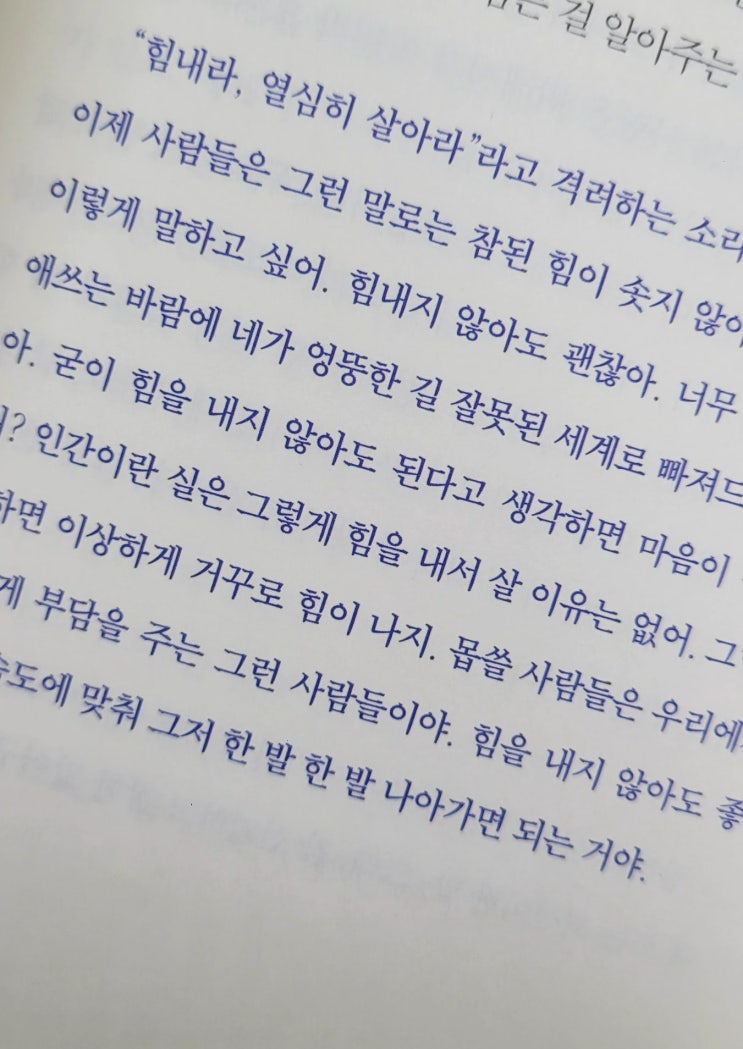 걸 알아주는
“힘내라, 열심히 살아라”라고 격려하는
이제 사람들은 그런 말로는 참된 힘이 솟지
이렇게 말하고 싶어. 힘내지 않아도 괜찮아. 너무
애쓰는 바람에 네가 엉뚱한 길 잘못된 세계로
아. 굳이 힘을 내지 않아도 된다고 생각하면 마음이
인간이란 실은 그렇게 힘을 내서 살 이유는 없어.
하면 이상하게 거꾸로 힘이 나지. 몹쓸 사람들은
게 부담을 주는 그런 사람들이야. 힘을 내지 않아도
맞춰 그저 한 발 한 발 나아가면 되는 거야.